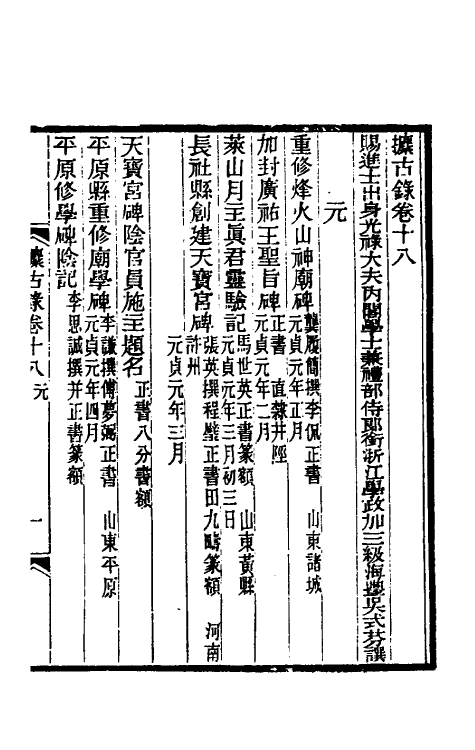 攈古錄卷十八
賜進士出身光祿大夫內閣學士兼禮部侍郎銜浙江學政加三級海豐吳式芬譔
元
重修烽火山神廟碑 龔履簡撰李侃正書 山東諸城
元貞元年正月
加封廣祐王聖旨碑 正書 直隸井陘
元貞元年二月
萊山月主眞君靈驗記 馬世英正書篆額 山東黃縣
元貞元年三月初三日
長社縣創建天寶宮碑 張英撰程璧正書田九疇篆額 河南
許州
元貞元年三月
天寶宮碑陰官員施主題名 正書八分書額
平原縣重修廟學碑 李謙撰傅夢弼正書 山東平原
元貞元年四月
平原修學碑陰記 李思誠撰并正書篆額
攈古錄卷十八 元 一